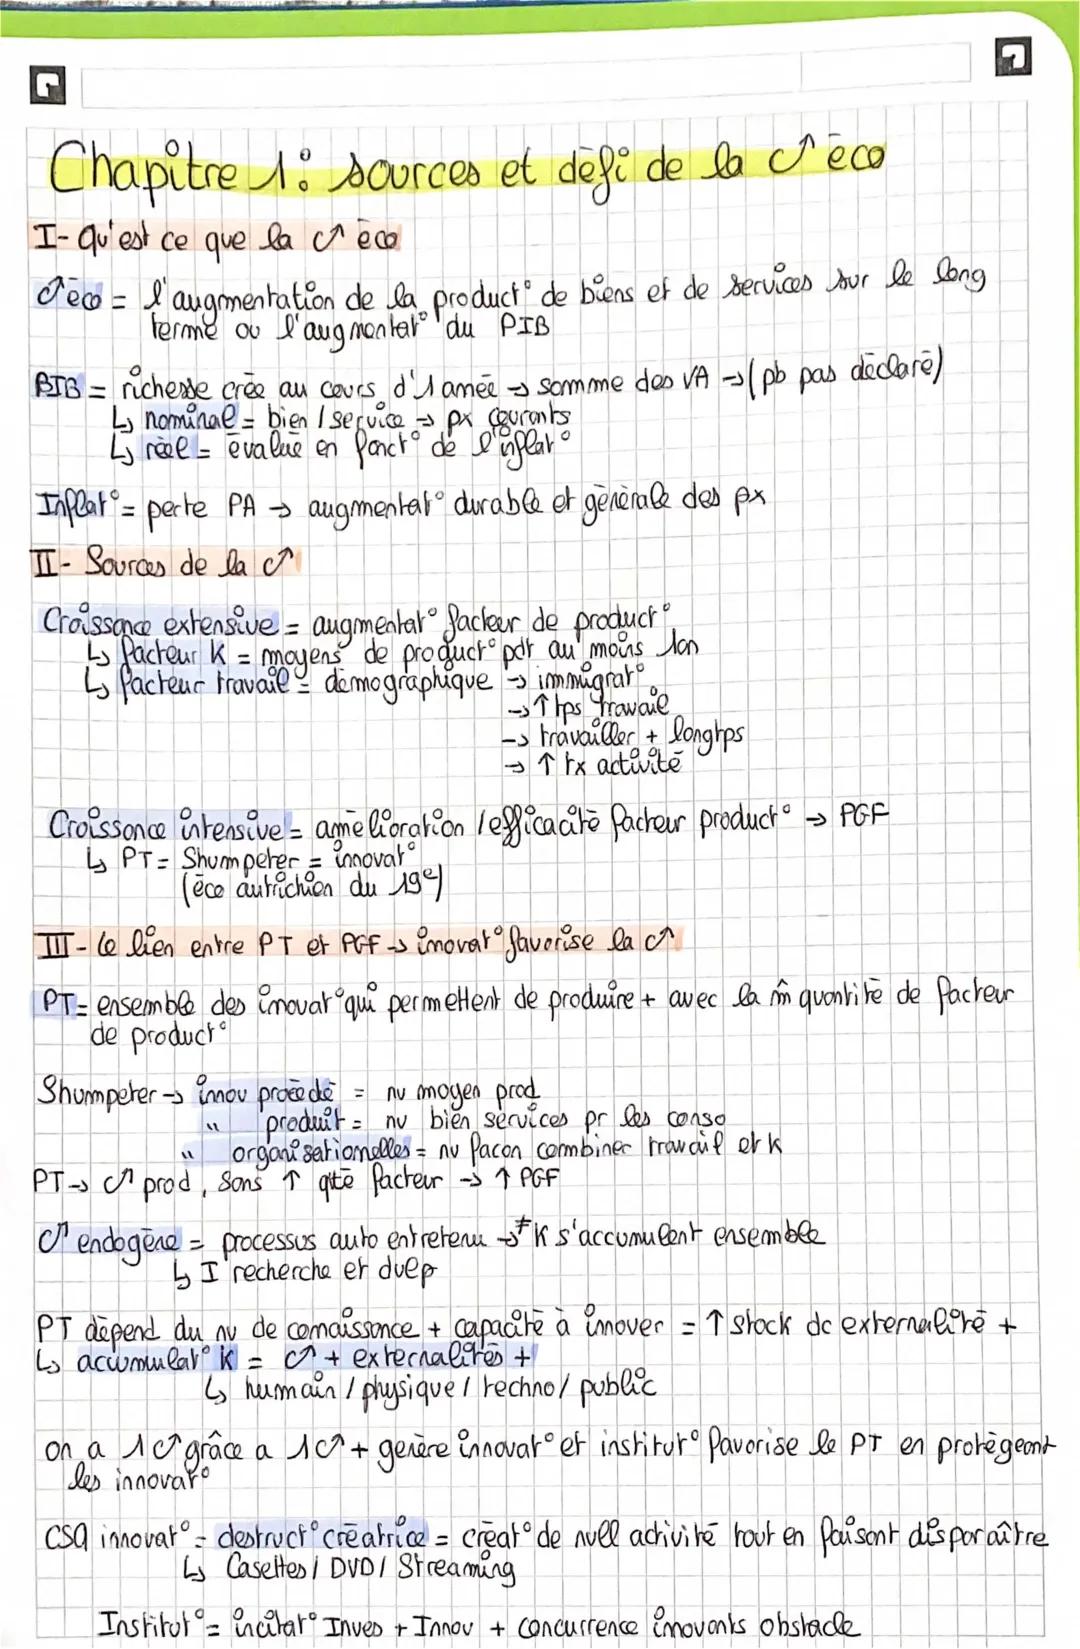 Chapitre 1 : sources et défi de la C↗ éco
I- Qu'est ce que la C↗ éco
C↗ éco = l'augmentation de la product° de biens et de services sur le long
terme ou l'augmentat° du PIB
PIB = richesse crée au cours d'1 année → somme des VA → (pb pas déclaré)
↳ nominal = bien / service → px courants
↳ réel = évalué en fonct° de l'inflat°
Inflat° = perte PA → augmentat° durable et générale des px
II- Sources de la C↗
Croissance extensive = augmentat° facteur de product°
↳ facteur K = moyens de product° pdt au moins 1an
↳ facteur travail = démographique → immigrat°
→ ↑ tps travail
→ travailler + longtps
→ ↑ tx activité
Croissance intensive = amélioration / efficacité facteur product° → PGF
↳ PT = Shumpeter = innovat°
(éco autrichien du 19e)
III- Le lien entre PT et PGF → innovat° favorise la C↗
PT = ensemble des innovat° qui permettent de produire + avec la m̂ quantité de facteur
de product°
Shumpeter → innov procédé = nv moyen prod
" produit = nv bien services pr les conso
" organisationelles = nv façon combiner travail et K
PT → C↗ prod, sans ↑ qté facteur → ↑ PGF
C↗ endogène = processus auto entretenu → ≠ K s'accumulent ensemble
↳ I recherche et dvep
PT dépend du nv de connaissance + capacité à innover = ↑ stock dc externalité +
↳ accumulat° K = C↗ + externalités +
↳ humain / physique / techno / public
on a 1 C↗ grâce a 1 C↗ + génère innovat° et institut° favorise le PT en protégeant
les innovat°
CSQ innovat° = destruct° créatrice = créat° de nvell activité tout en faisant disparaître
↳ Casettes / DVD / Streaming
Institut° = incitat° Inves + Innov + concurrence innovants obstacle